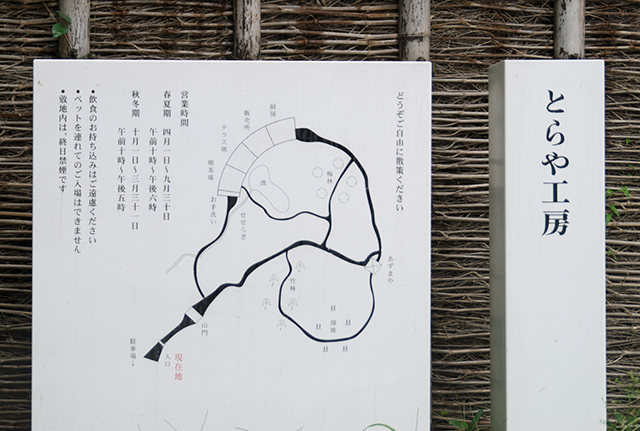 とらや工房
どうぞご自由に散策ください
営業時間
春夏期 四月一日〜九月三十日
午前十時〜午後六時
秋冬期 十月一日〜三月三十一日
午前十時〜午後五時
●飲食のお持ち込みはご遠慮ください
●ペットを連れてのご入場はできません
●敷地内は、終日禁煙です
厨房
販売所
テラス席
喫茶席
お手洗い
池
せせらぎ
梅林
あずまや
竹林
山門
入口
現在地
駐車場↓